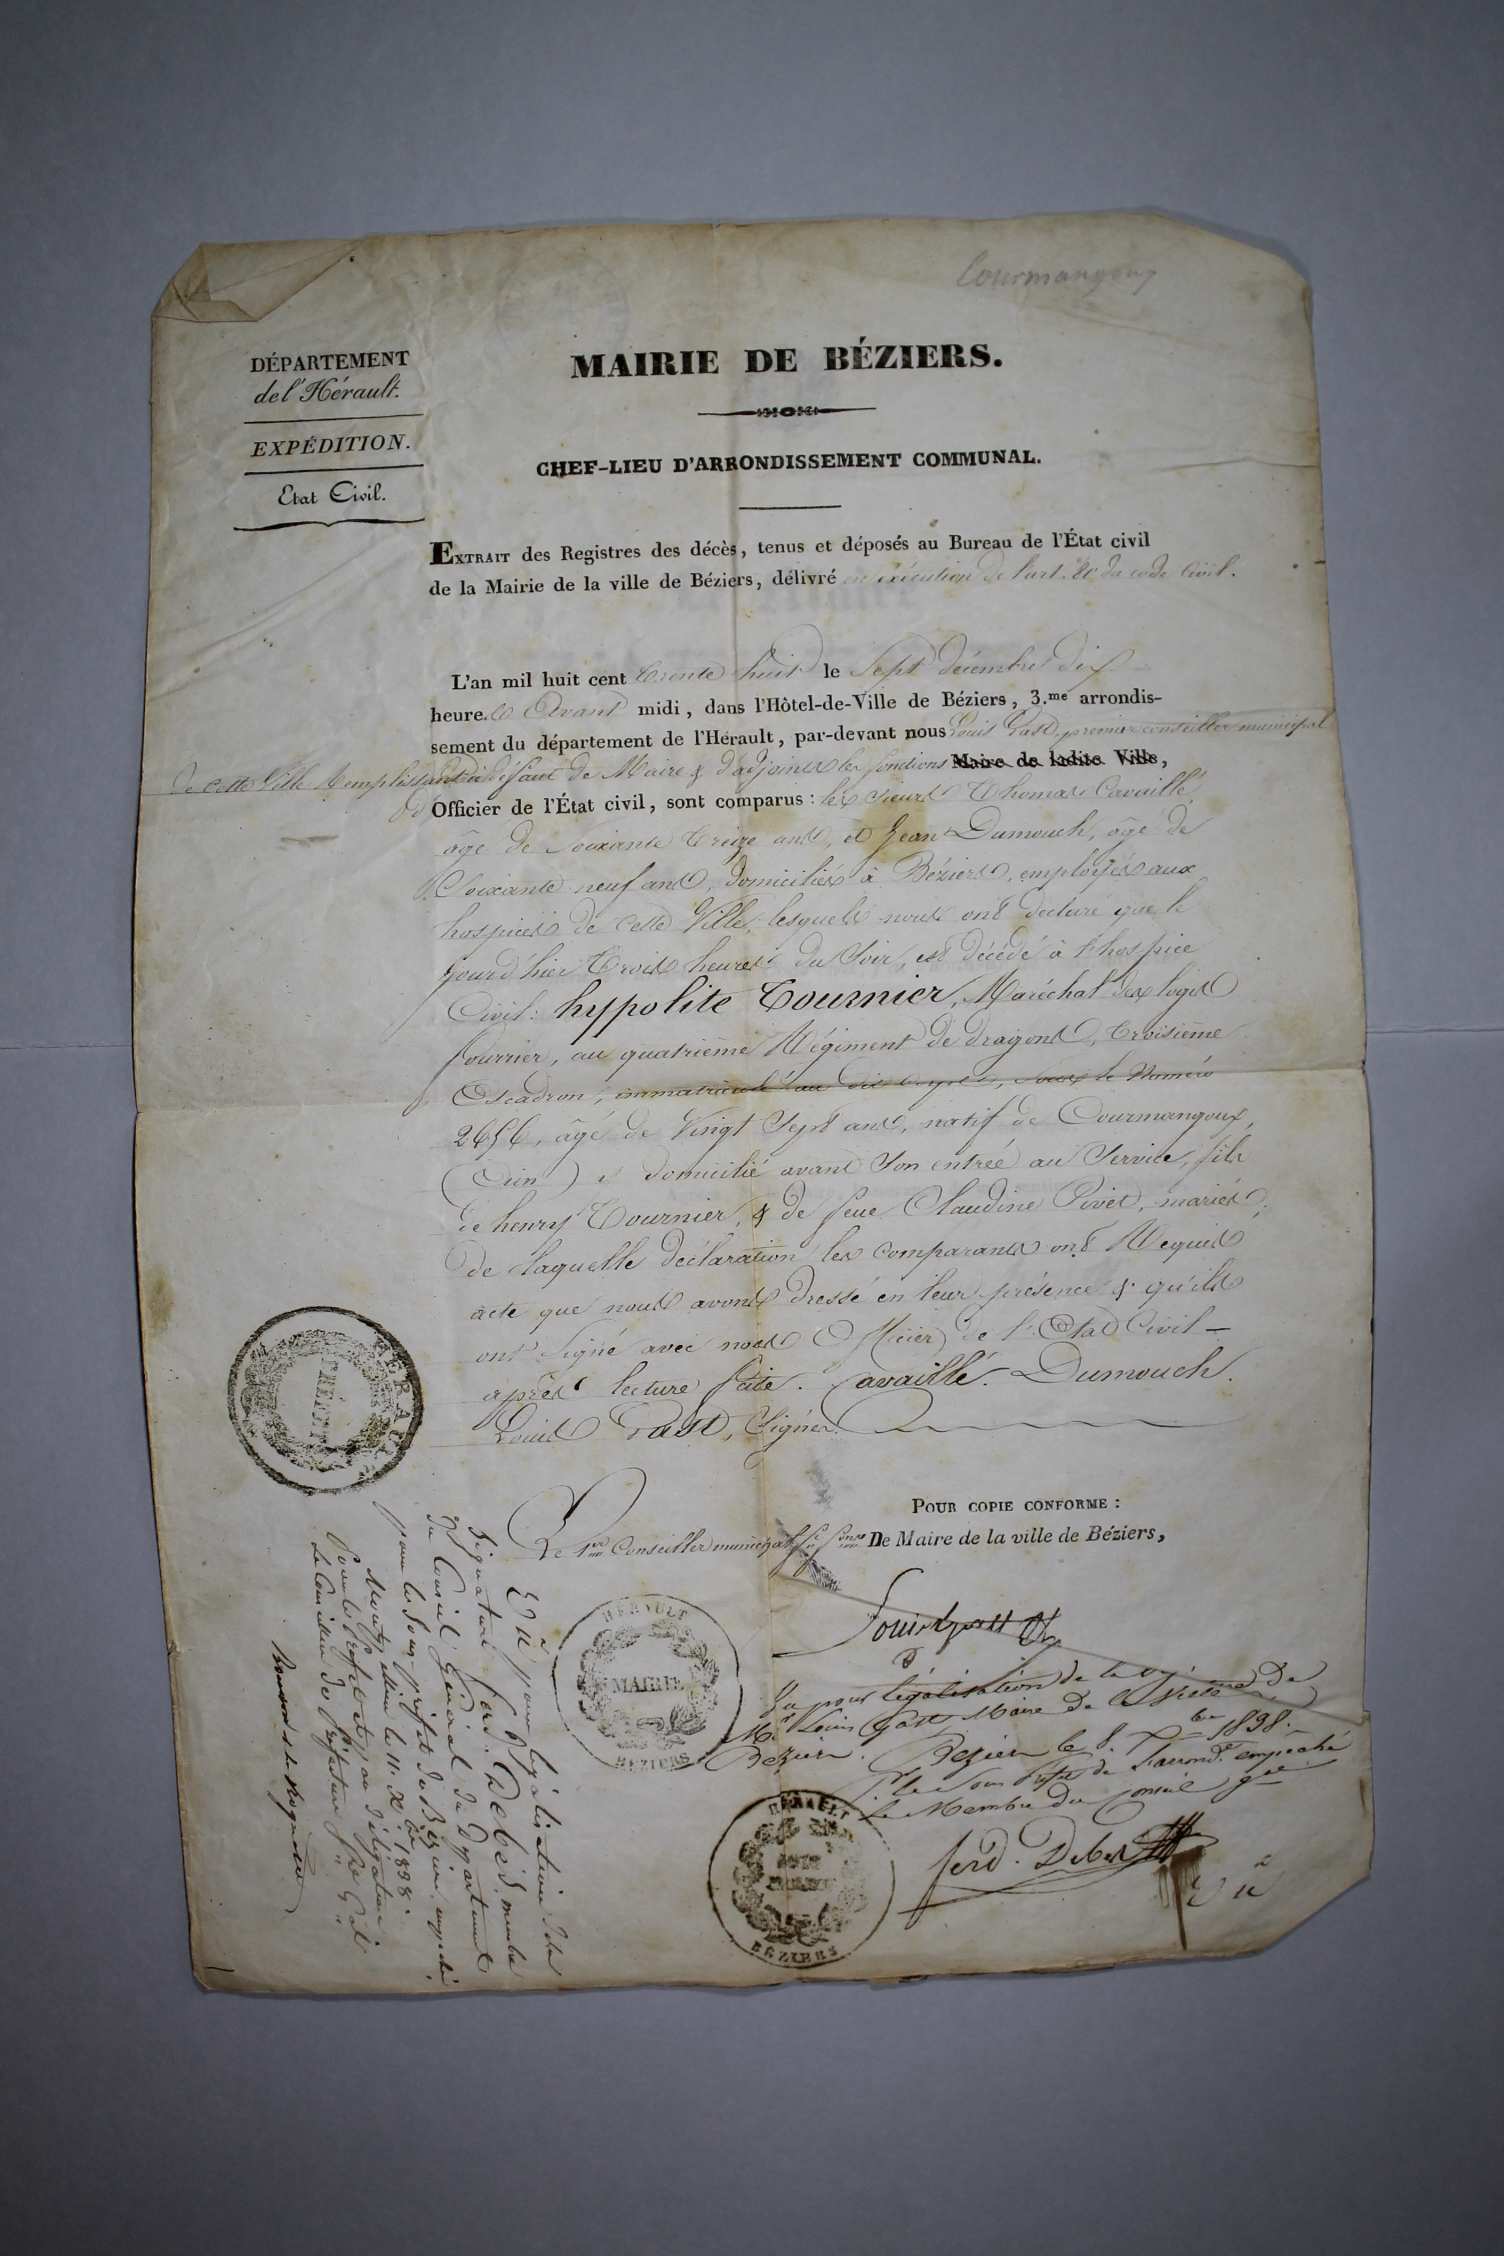 Courmangoux
DÉPARTEMENT
de l'Hérault.
EXPÉDITION.
Etat Civil.
MAIRIE DE BÉZIERS.
CHEF-LIEU D'ARRONDISSEMENT COMMUNAL.
EXTRAIT des Registres des décès, tenus et déposés au Bureau de l'État civil
de la Mairie de la ville de Béziers, délivré en exécution de l'art. 80 du code Civil.
L'an mil huit cent trente huit le Sept décembre dix
heures Avant midi, dans l'Hôtel-de-Ville de Béziers, 3.me arrondis-
sement du département de l'Hérault, par-devant nous Louis Gast, premier conseiller municipal
de cette Ville Remplissant à défaut de Maire & d'adjoints les fonctions Maire de ladite Ville,
d' Officier de l'État civil, sont comparus : les sieurs Thomas Cavaillé,
âgé de Soixante treize ans, et Jean Dumouch, âgé de
Soixante neuf ans, domiciliés à Béziers, employés aux
hospices de cette Ville, lesquels nous ont déclaré que le
jour d'hier trois heures du Soir, est décédé à l'hospice
Civil : hypolite Tournier, Maréchal des logis
fourrier, au quatrième Régiment de dragons, troisième
Escadron, immatriculé au dit corps, sous le Numéro
2656, âgé de Vingt Sept ans, natif de Courmangoux,
(Ain) y domicilié avant Son entrée au Service, fils
de henry Tournier, & de feue Claudine Pivet, mariés ;
de laquelle déclaration les comparants ont Requis
acte que nous avons dressé en leur présence & qu'ils
ont Signé avec nous Officier de l'État Civil -
après lecture faite. Cavaillé. Dumouch.
Louis Gast, Signés.
POUR COPIE CONFORME :
Le 1er Conseiller municipal De Maire de la ville de Béziers,
Louis Gast
Vu pour légalisation de la signature de
Mr Louis Gast Maire de
Bezier. Bezier le 8. Xbre 1838.
P. le Sous Préfet de l'arrondt empêché
Le Membre du conseil gal
ferd. Debes
Vu
HÉRAULT
MAIRIE
BÉZIERS
HÉRAULT
BÉZIERS
HÉRAULT
Vu pour légalisation de la
signature de Mr ferd. Debès, membre
du Conseil Général du Département
pour le Sous-préfet de Bezier, empêché
Montpellier le 11. Xbre 1838.
Pour le Préfet en délégation
Le Conseiller de Préfecture